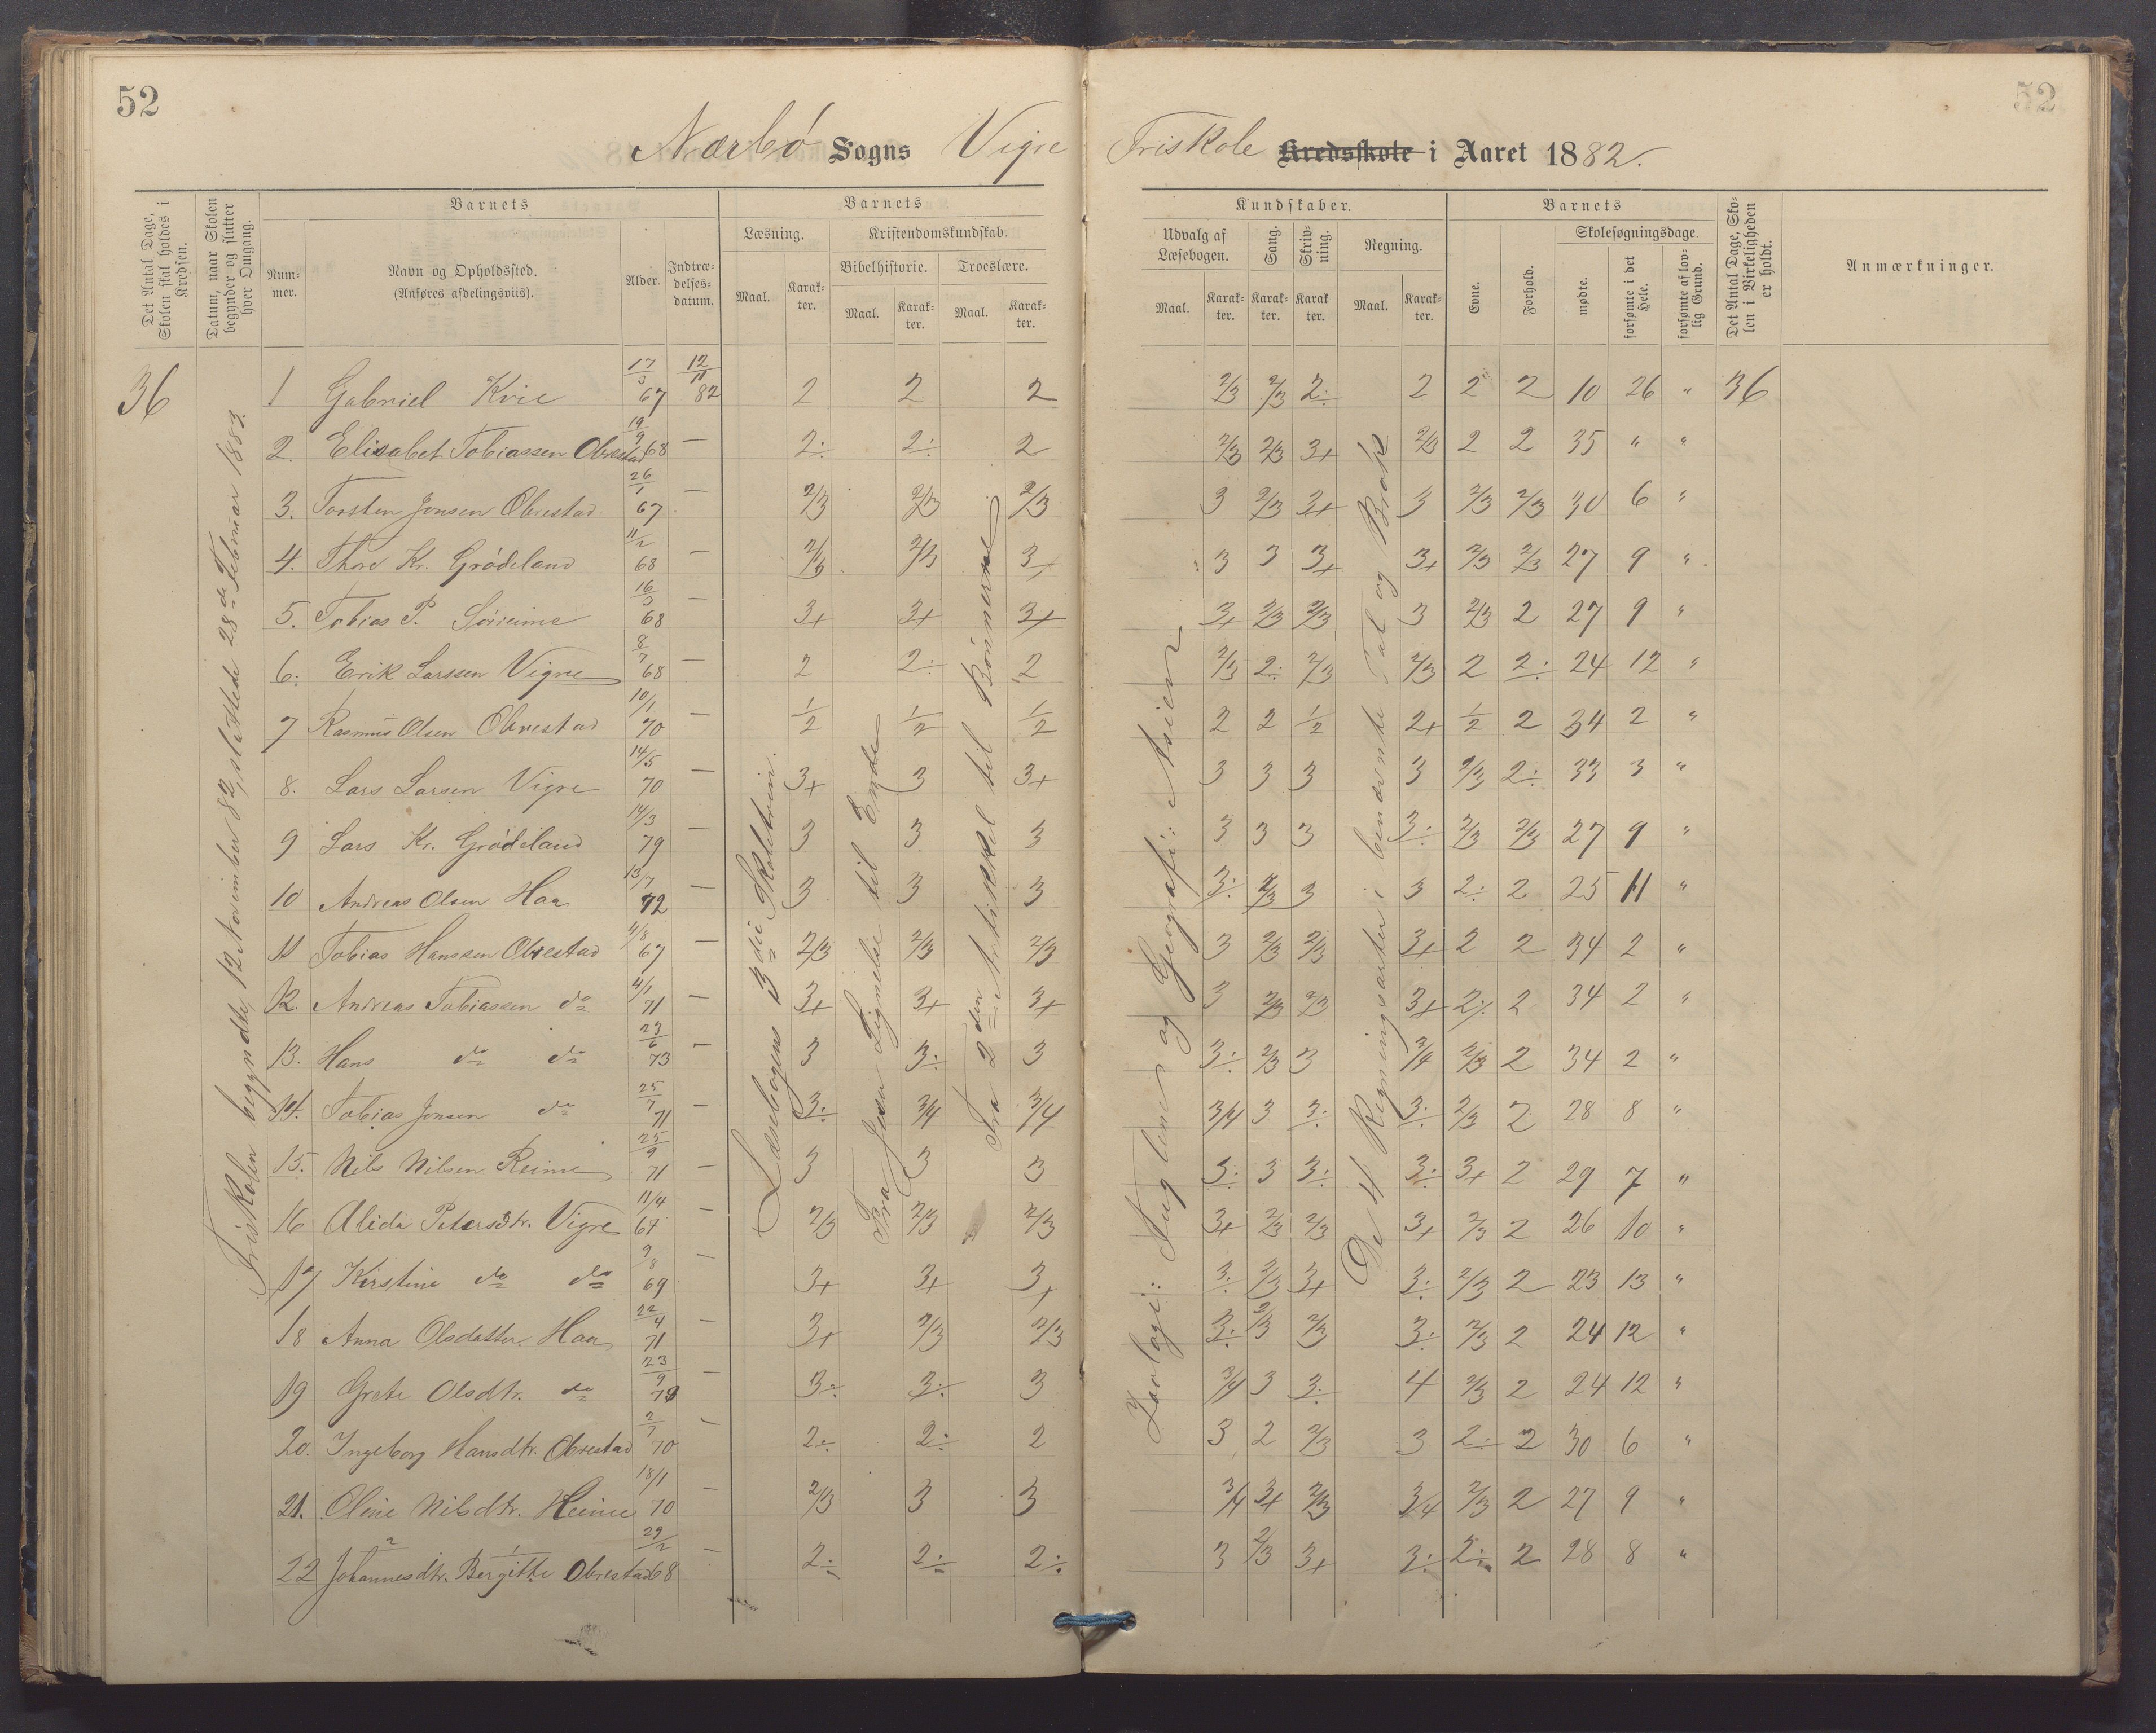 52
52
Nærbö Sogns Vigre Friskole Kredsskole i Aaret 1882.
Det Antal Dage, Skolen skal holdes i Kredsen.
Datum, naar Skolen begynder og slutter hver Omgang.
Barnets
Num-mer.
Navn og Opholdssted.
(Anføres afdelingsviis).
Alder.
Indtræ-delses-datum.
Barnets
Læsning.
Maal.
Karak-ter.
Kristendomskundskab.
Bibelhistorie.
Maal.
Karak-ter.
Troeslære.
Maal.
Karak-ter.
Kundskaber.
Udvalg af Læsebogen.
Maal.
Karak-ter.
Sang.
Karak-ter.
Skriv-ning.
Karak-ter.
Regning.
Maal.
Karak-ter.
Barnets
Evne.
Forhold.
Skolesøgningsdage.
mødte.
forsømte i det Hele.
forsømte af lov-lig Grund.
Det Antal Dage, Sko-len i Virkeligheden er holdt.
Anmærkninger.
36
Friskolen begyndte 12 November 82, sluttede 28de Februar 1883.
Læsebogens 3die Skoletrin.
Fra Jesu Lignelse til Ende
Fra 2den Artikkel til Bönnerne
Zoologi: Fuglene og Geografi: Asien
De 4 Regningsarter i benævnte Tal og Brök
1 Gabriel Kvie 17/3 67 12/11 82 2 2 2 2/3 2/3 2÷ 2 2 2 10 26 " 36
2. Elisabet Tobiassen Obrestad 19/9 68 — 2÷ 2÷ 2 2/3 2/3 3+ 2/3 2 2 35 " "
3. Torsten Jonsen Obrestad 26/1 67 — 2/3 2/3 2/3 3 2/3 3+ 3 2/3 2/3 30 6 "
4. Thore Kr. Grödeland 11/2 68 — 2/3 2/3 3+ 3 3 3+ 3+ 2/3 2/3 27 9 "
5. Tobias P. Söreime 16/3 68 — 3+ 3+ 3+ 3+ 2/3 2/3 3 2/3 2 27 9 "
6. Erik Larssen Vigre 8/7 68 — 2 2÷ 2 2/3 2÷ 2/3 2/3 2 2÷ 24 12 "
7 Rasmus Olsen Obrestad 10/1 70 — 1/2 1/2 1/2 2 2 1/2 2+ 1/2 2 34 2 "
8. Lars Larsen Vigre 14/5 70 — 3+ 3 3+ 3 3 3 3 2/3 2÷ 33 3 "
9 Lars Kr. Grödeland 14/3 79 — 3 3 3 3 3 3 3÷ 2/3 2/3 27 9 "
10 Andreas Olsen Haa 13/7 72 — 3 3 3 3÷ 2/3 3 3 2÷ 2 25 11 "
11 Tobias Hanssen Obrestad 4/8 67 — 2/3 2/3 2/3 3 2/3 2/3 3+ 2 2 34 2 "
12. Andreas Tobiassen do 4/1 71 — 3+ 3+ 3+ 3 2/3 2/3 3+ 2÷ 2 34 2 "
13. Hans do do 23/6 73 — 3 3÷ 3 3÷ 2/3 3 3/4 2/3 2 34 2 "
14. Tobias Jonsen do 25/7 71 — 3÷ 3/4 3/4 3/4 3 3÷ 3÷ 2/3 2 28 8 "
15. Nils Nilsen Reime 25/9 71 — 3 3 3 3÷ 3 3÷ 3÷ 3+ 2 29 7 "
16 Alida Petersdtr. Vigre 11/4 67 — 2/3 2/3 2/3 3+ 2/3 2/3 3+ 2/3 2 26 10 "
17 Kirstine do do 9/8 69 — 3+ 3+ 3+ 3÷ 2/3 3+ 3÷ 2/3 2 23 13 "
18 Anna Olsdatter Haa 22/4 71 — 3+ 2/3 2/3 3÷ 2/3 2/3 3÷ 2/3 2 24 12 "
19 Grete Olsdtr. do 23/9 — 3÷ 3÷ 3 3/4 3 3÷ 4 2/3 2 24 12 "
20. Ingeborg Hansdtr. Obrestad 2/7 70 — 2÷ 2÷ 2 3 2 2/3 3 2÷ 2 30 6 "
21. Oline Nilsdtr. Reime 18/1 70 — 2/3 3 3 3/4 3+ 2/3 3/4 2/3 2 27 9 "
22 Johannesdtr. Bergitte Obrestad 29/2 68 — 2÷ 2÷ 2÷ 3 2/3 3+ 3÷ 2÷ 2 28 8 "